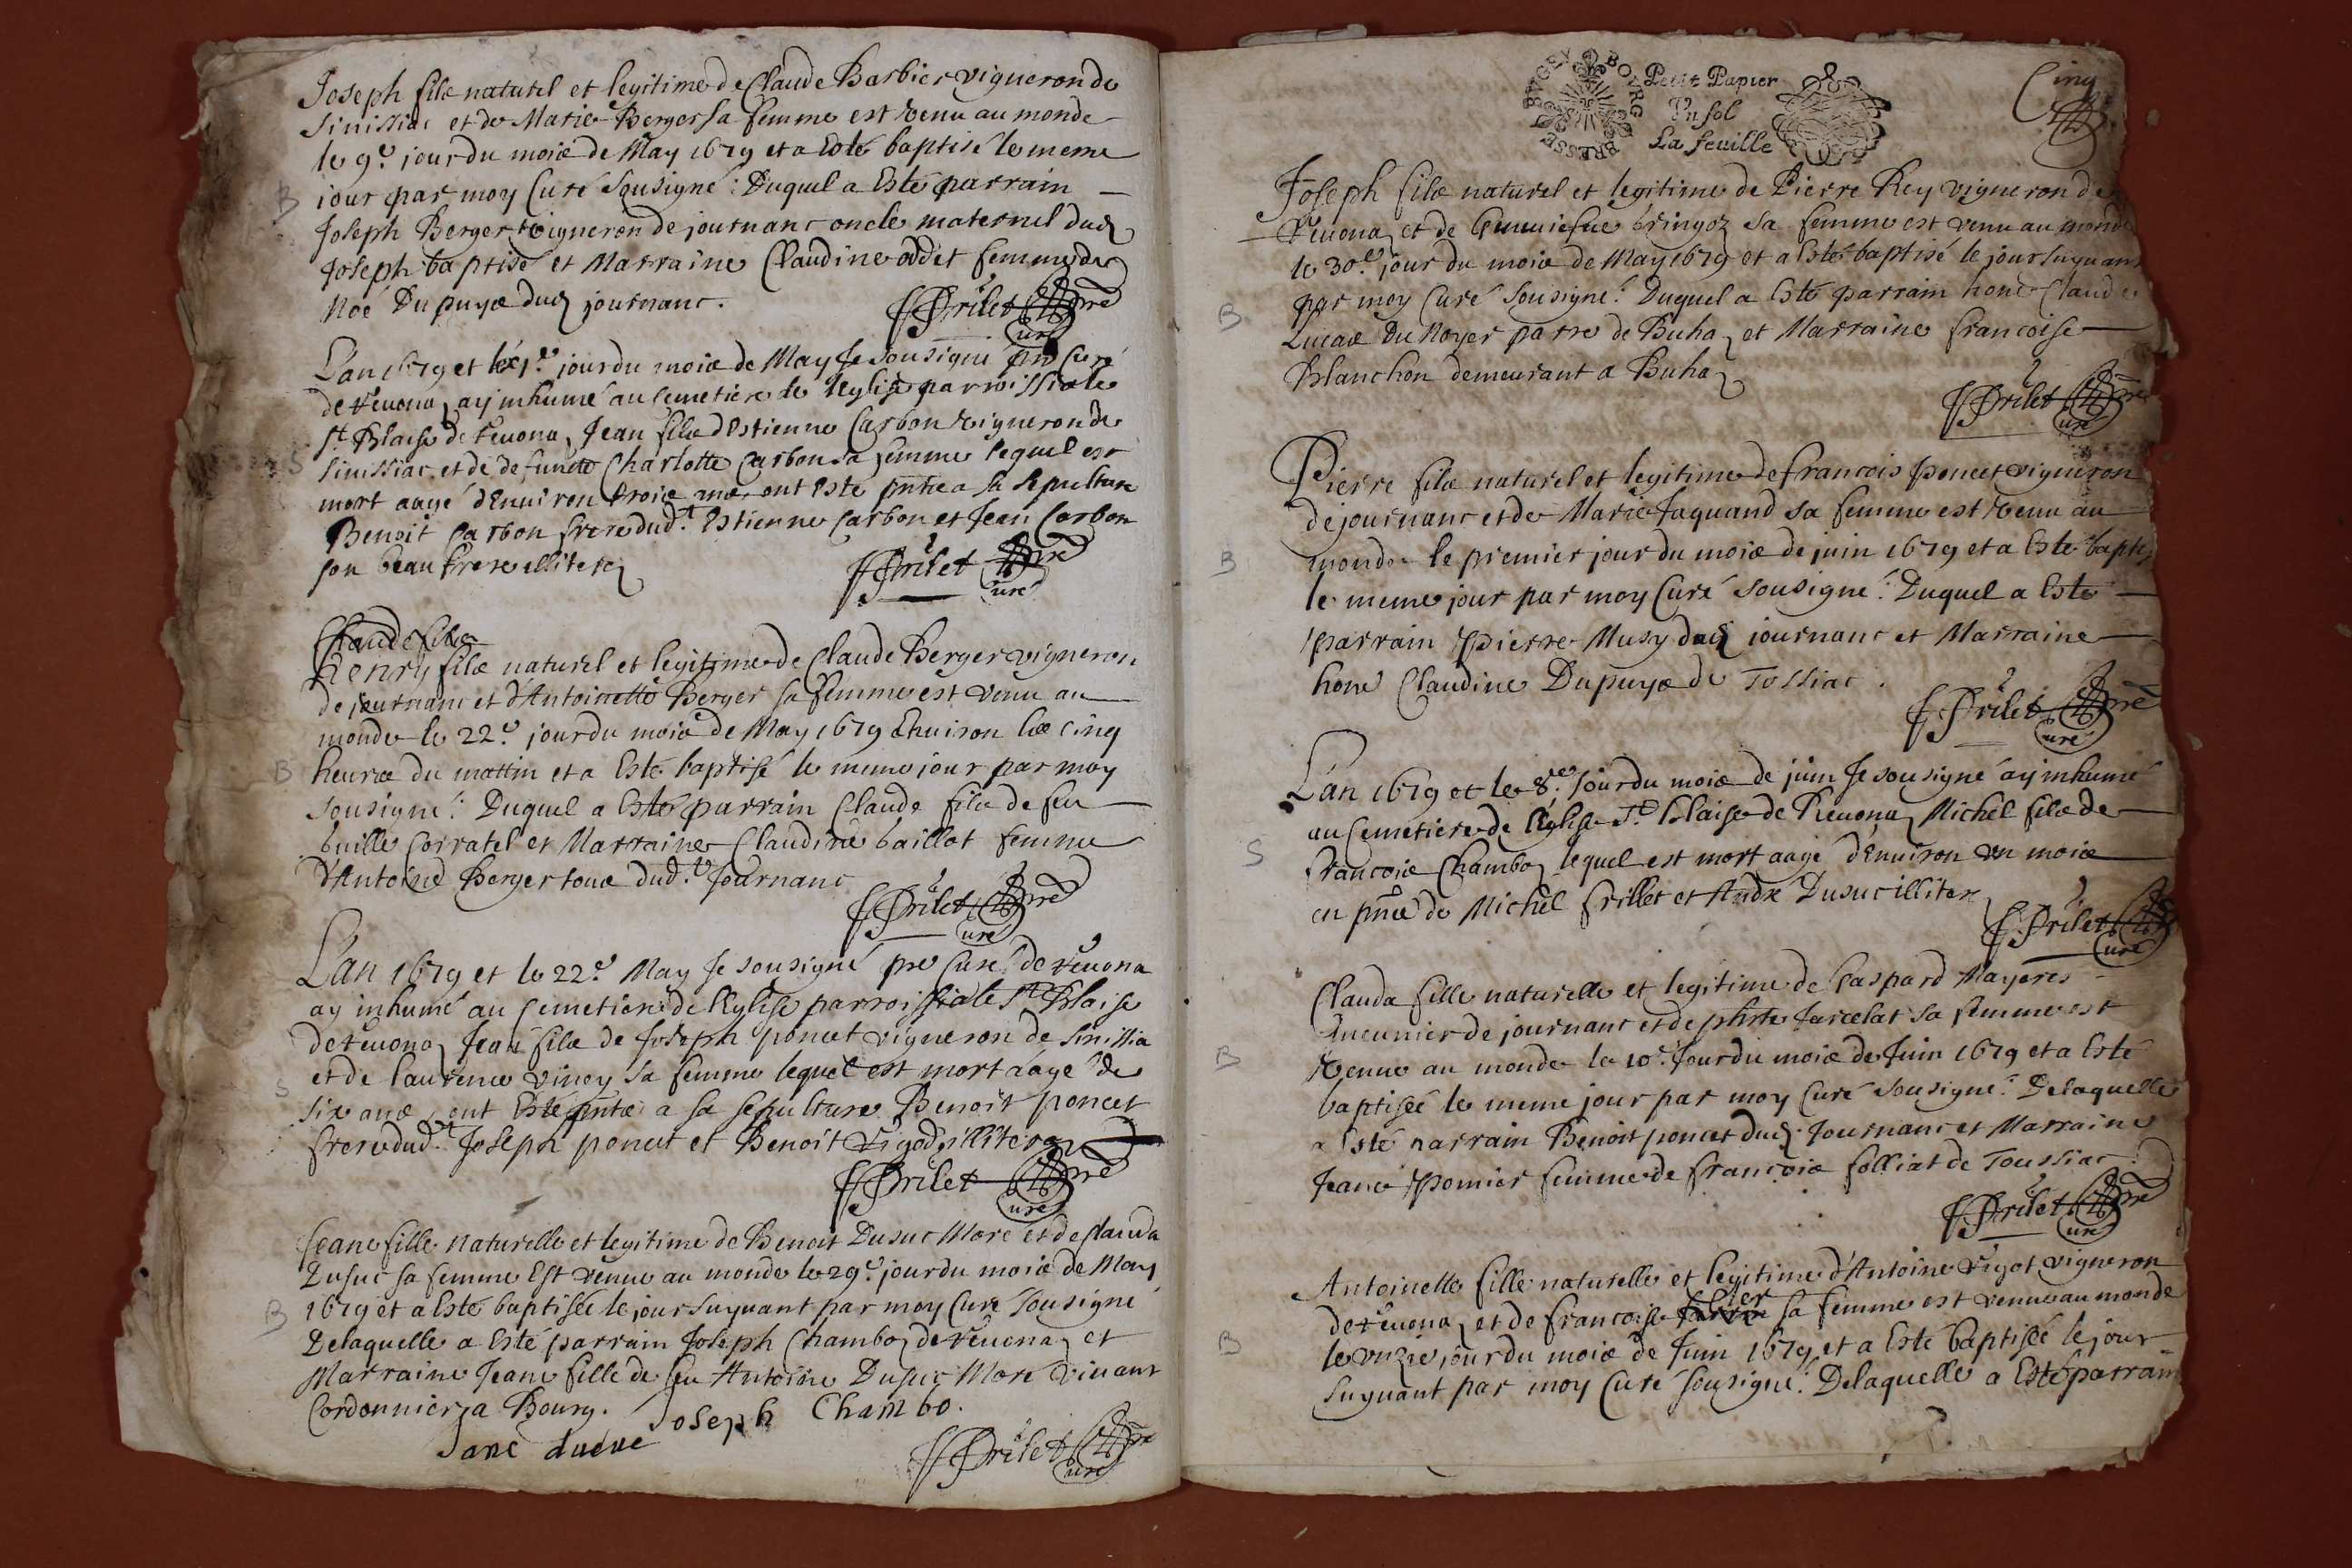 Joseph filz naturel et legitime de Claude Barbier vigneron de
Sinissiac et de Marie Berger sa femme est venu au monde
le 9e jour du mois de May 1679 et a esté baptisé le meme
B
jour par moy Curé Sousigné: Duquel a Esté parrain
Joseph Berger vigneron de journanc oncle maternel dud
Joseph baptisé et Marraine Claudine oddet femme de
Noé Dupuys dud journanc.
Prilet pre
Curé
L'an 1679 et le jour du mois de May Je sousigné pre Curé
de reuona ay inhumé au Cemetiere de leglise parroissiale
St. Blaise de reuona Jean filz d'Estienne Carbon vigneron de
S
Sinissiac et de defuncte Charlotte Carbon sa femme lequel est
mort aagé d'Enuiron trois ans, ont Esté pnts a sa sepulture
Benoit Carbon frere dud.t Estienne Carbon et Jean Carbon
son beau frere illiterez
Prilet pre
Curé
Claude filz
Henry filz naturel et legitime de Claude Berger vigneron
de journanc et d'Antoinette Berger sa femme est venu au
monde le 22e jour du mois de May 1679 Enuiron les cinq
B
heures du mattin et a Esté baptisé le meme jour par moy
sousigné: Duquel a Esté parrain Claude filz de feu
Corratel et Marraine Claudine baillot femme
d'Antoine Berger tous dud.t Journanc
Prilet pre
Curé
L'an 1679 et le 22e May Je sousigné pre Curé de reuona
ay inhumé au Cemetiere de l'Eglise parroissiale St Blaise
de reuona Jean filz de Joseph poncet vigneron de Sinissia
et de laurence viney sa femme lequel est mort aagé de
S
six ans, ont Esté pntz a sa sepulture Benoit poncet
frere dud.t Joseph poncet et Benoit Vigod illiterez
Prilet pre
Curé
Jeane fille naturelle et legitime de Benoit Dusuc Moré et de Clauda
Dusuc sa femme Est venue au monde le 29e jour du mois de May
B
1679 et a Esté baptisée le jour suyuant par moy Curé Sousigné
Delaquelle a Esté parrain Joseph Chambo de reuona et
Marraine Jeane fille de feu Antoine Dusuc Moré viuant
Cordonnier a Bourg.
Joseph Chambo.
Prilet pre
Curé
BRESSE BVGEY BOVRG
Petit Papier
Vn sol
La feuille
Cinq
Joseph filz naturel et legitime de Pierre Rey vigneron de
Reuona et de bringoz sa femme est venu au monde
le 30e jour du mois de May 1679 et a Esté baptisé le jour suyuant
B
par moy Curé Sousigné: Duquel a Esté parrain hone Claude
Lucas Du Noyer parre de Buha et Marraine francoise
Blanchon demeurant a Buha
Prilet pre
Curé
Pierre filz naturel et legitime de francois poncet vigneron
de journanc et de Marie Jaquand sa femme est venu au
B
monde le premier jour du mois de juin 1679 et a Esté baptisé
le meme jour par moy Curé Sousigné: Duquel a Esté
parrain pierre Musy dud journanc et Marraine
hone Claudine Dupuys de Tossiac.
Prilet pre
Curé
L'an 1679 et le 8e. Jour du mois de juin Je sousigné ay inhumé
au Cemetiere de l'Eglise St blaise de Reuona Michel filz de
S
francois Chambo lequel est mort aagé d'Enuiron vn mois
en pnce de Michel frillet et Andre Dusuc illiterz
Prilet pre
Curé
Clauda fille naturelle et legitime de Gaspard Mayeres
meunier de journanc et de phrte Jarcelat sa femme est
B
venue au monde le 10e. Jour du mois de Juin 1679 et a Esté
baptisée le meme jour par moy Curé Sousigné: Delaquelle
a Esté parrain Benoit poncet dud. Journanc et Marraine
Jeane pomier femme de francois folliat de Toussiac.
Prilet pre
Curé
Antoinette fille naturelle et legitime d'Antoine Vigot vigneron
de reuona et de francoise sa femme est venue au monde
B
le vnzie jour du mois de Juin 1679 et a Esté baptisée le jour
suyuant par moy Curé sousigné: Delaquelle a Esté parrain